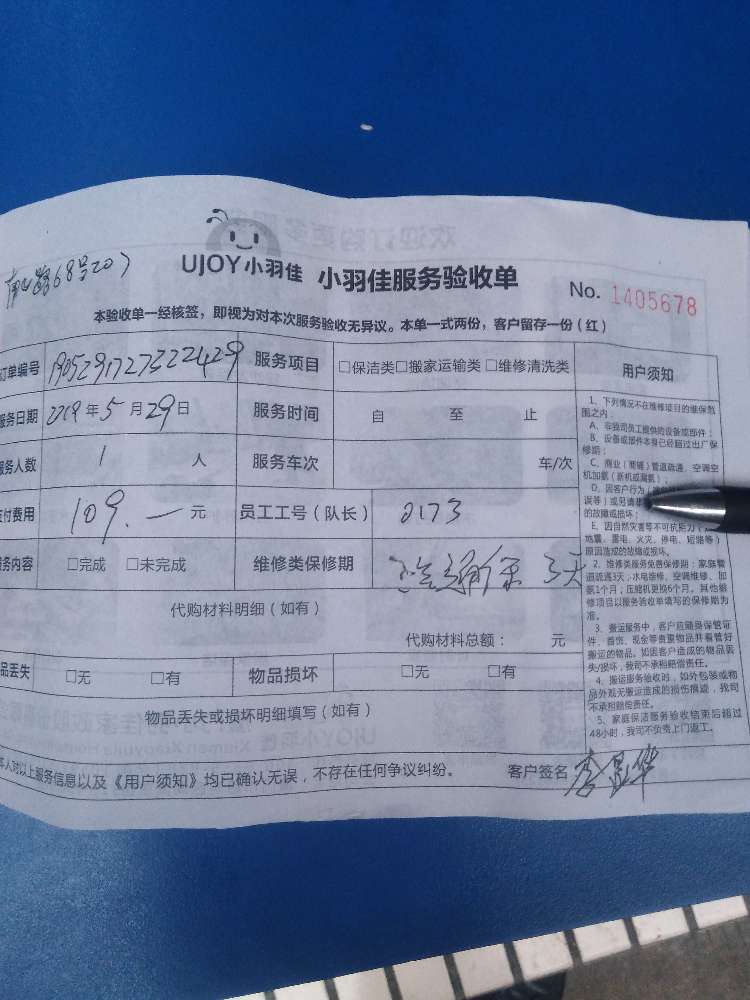 UJOY小羽佳 小羽佳服务验收单 No. 1405678
路68号207
本验收单一经核签，即视为对本次服务验收无异议。本单一式两份，客户留存一份（红）
订单编号 19052917273222429 服务项目 □保洁类□搬家运输类□维修清洗类
服务日期 2019年5月29日 服务时间 自 至 止
服务人数 1 人 服务车次 车/次
支付费用 109.一元 员工工号（队长） 2173
服务内容 □完成 □未完成 维修类保修期 3天
代购材料明细（如有）
代购材料总额： 元
物品丢失 □无 □有 物品损坏 □无 □有
物品丢失或损坏明细填写（如有）
本人对以上服务信息以及《用户须知》均已确认无误，不存在任何争议纠纷。 客户签名
用户须知
1、下列情况不在维修项目的维保范
围之内：
A、非我司员工提供的设备或部件；
B、设备或部件本身已经超过出厂保
修期；
C、商业（商铺）管道疏通、空调空
机加氨（新机或漏氨）；
D、因客户行为
误等）或另请
的故障或损坏；
E、因自然灾害等不可抗力
地震、雷电、火灾、停电、短路等）
原因造成的故障或损坏。
2、维修类服务免费保修期：家庭管
道疏通3天；水电维修、空调维修、加
氨1个月；压缩机更换6个月。其他维
修项目以服务验收单填写的保修期为
准。
3、搬运服务中，客户应随身保管证
件、首饰、现金等贵重物品并看管好
搬运的物品。如因客户造成的物品丢
失/损坏，我司不承担赔偿责任。
4、搬运服务验收时，如外包装或物
品外观无搬运造成的损伤痕迹，我司
不承担赔偿责任。
5、家庭保洁服务验收结束后超过
48小时，我司不负责上门返工。